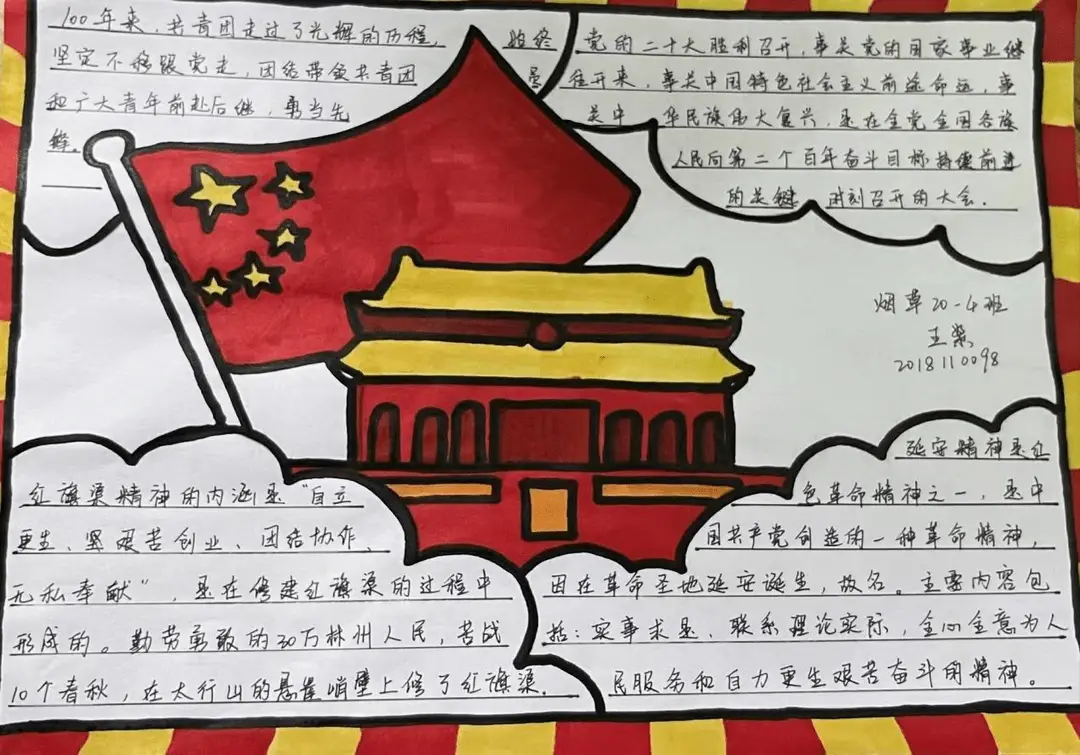 100年来，共青团走过了光辉的历程，始终
坚定不移跟党走，团结带领共青团
和广大青年前赴后继，勇当先
锋。
党的二十大胜利召开，事关党的国家事业继
往开来，事关中国特色社会主义前途命运，事
关中华民族伟大复兴，是在全党全国各族
人民向第二个百年奋斗目标持续前进
的关键时刻召开的大会．
烟草20-4班
王紫
2018110098
红旗渠精神的内涵是“自立
更生、坚艰苦创业、团结协作、
无私奉献”，是在修建红旗渠的过程中
形成的。勤劳勇敢的30万林州人民，苦战
10个春秋，在太行山的悬崖峭壁上修了红旗渠．
延安精神是红
色革命精神之一，是中
国共产党创造的一种革命精神，
因在革命圣地延安诞生，故名。主要内容包
括：实事求是、联系理论实际，全心全意为人
民服务和自力更生艰苦奋斗的精神。